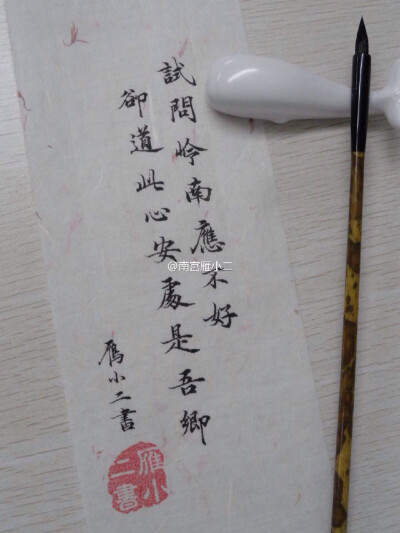 試問岭南應不好
卻道此心安處是吾鄉
鴈小二書
雁小二書
@南宫雁小二